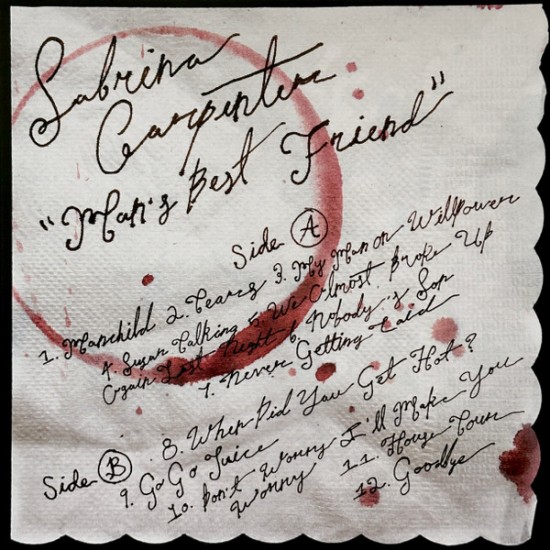 Sabrina
Carpenter
"Man's Best Friend"
Side A
1. Manchild 2. Tears 3. My Man on Willpower
4. Sugar Talking 5. We Almost Broke Up
Again Last Night 6. Nobody's Son
7. Never Getting Laid
Side B
8. When Did You Get Hot?
9. Go Go Juice
10. Don't Worry I'll Make You
Worry 11. House Tour
12. Goodbye